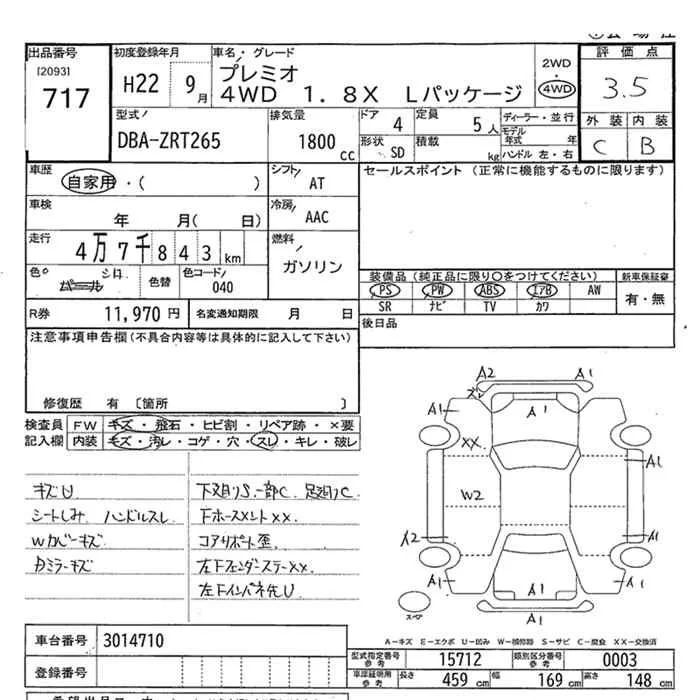 出品番号
[2093]
717
初度登録年月
H22 9月
車名・グレード
プレミオ
4WD 1.8X Lパッケージ
2WD
・
4WD
評価点
3.5
外装 内装
C B
型式
DBA-ZRT265
排気量
1800 cc
ドア 4
定員 5人
形状 SD
積載 kg
ディーラー・並行
モデル年式 年
ハンドル 左・右
車歴
自家用・( )
シフト
AT
セールスポイント (正常に機能するものに限ります)
車検
年 月( 日)
冷房
AAC
走行
4万7千843km
燃料
ガソリン
色
シロ
パール
色替
色コード
040
装備品(純正品に限り○をつけてください)
新車保証書
PS PW ABS エアB AW
有・無
SR ナビ TV カワ
R券 11,970円
名変通知期限 月 日
後日品
注意事項申告欄(不具合内容等は具体的に記入して下さい)
修復歴 有 〔箇所 〕
検査員 FW キズ・飛石・ヒビ割・リペア跡・×要
記入欄 内装 キズ・汚レ・コゲ・穴・スレ・キレ・破レ
キズU
シートしみ ハンドルスレ
Wカバーキズ
Dミラーキズ
下廻りS.一部C 足廻りC
Fホースメントxx.
コアサポート歪
左Fフェンダーステーxx.
左Fインパネ先U
A2 A1
A1 A1
XX
W2
A1
A2 A1
A1 A1 A1
A1
スペア
A-キズ E-エクボ U-凹み W-補修跡 S-サビ C-腐食 XX-交換済
車台番号 3014710
登録番号
型式指定番号
参考
15712
類別区分番号
参考
0003
車庫証明用
参考
長さ 459 cm 幅 169 cm 高さ 148 cm